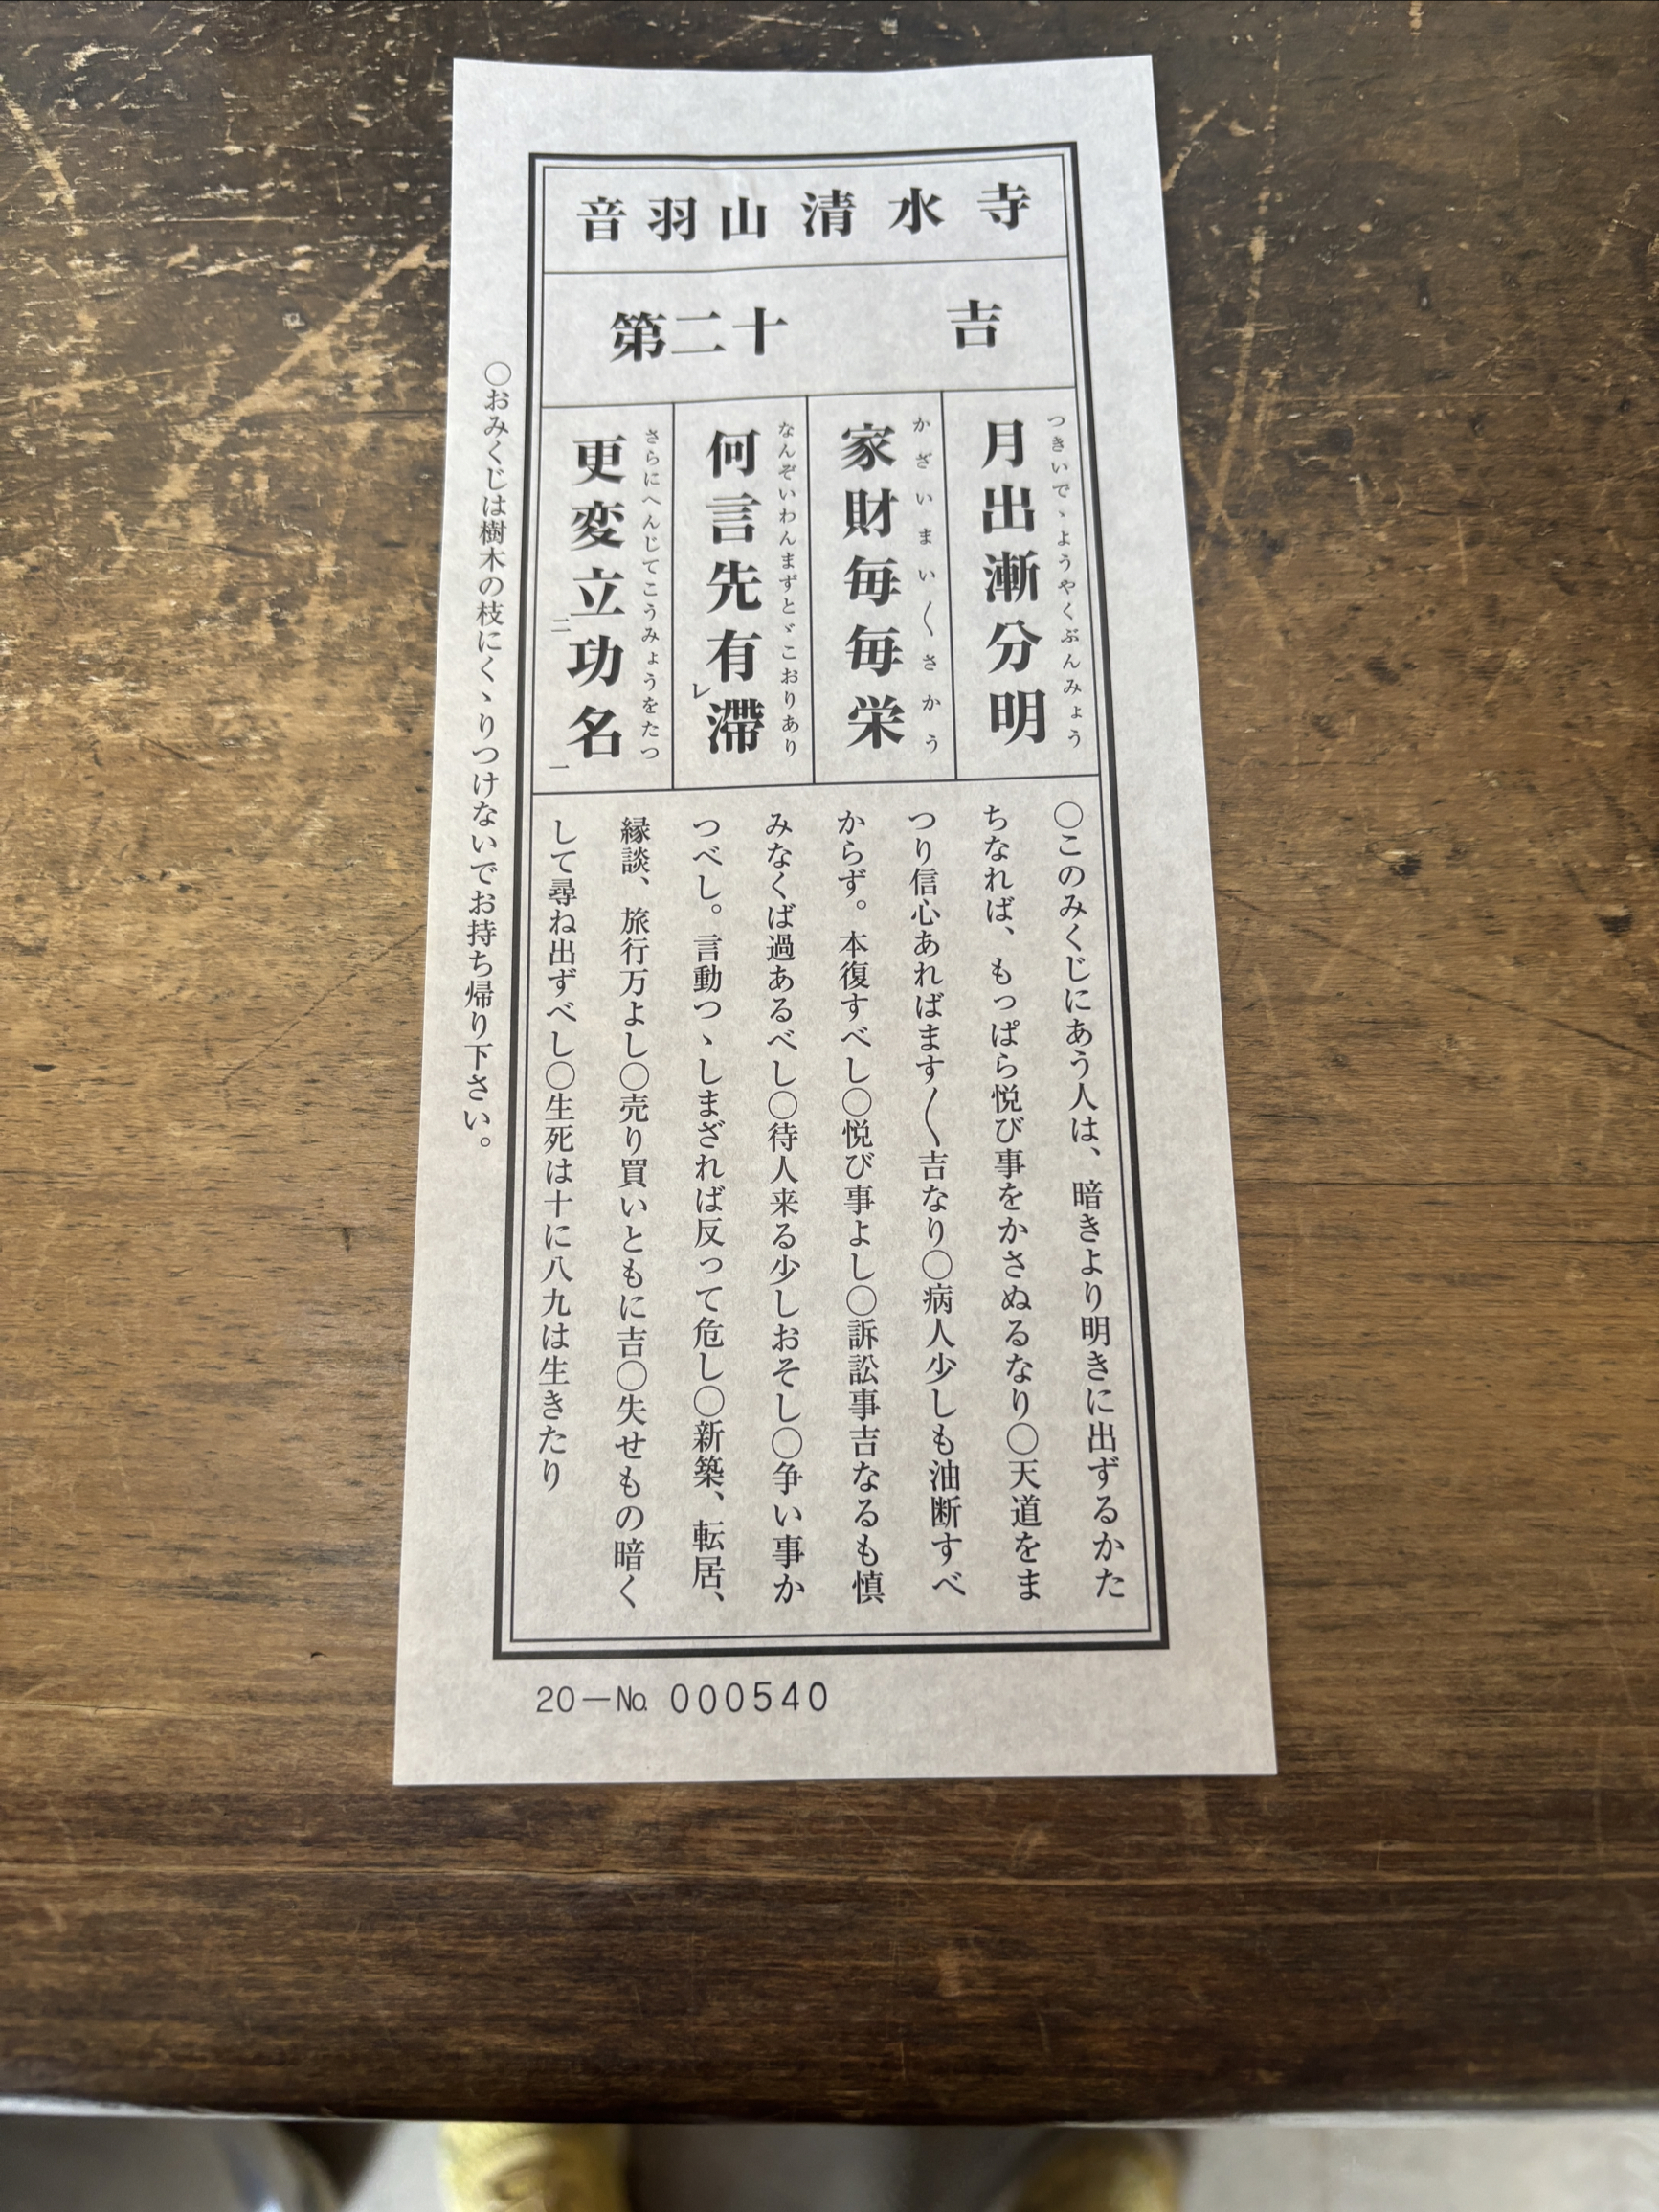 音羽山清水寺
第二十　吉
月出漸分明
つきいでゝようやくぶんみょう
家財毎毎栄
かざいまい〱さかう
何言先有滞
なんぞいわんまずとゞこおりあり
レ
更変立功名
さらにへんじてこうみょうをたつ
二
一
〇このみくじにあう人は、暗きより明きに出ずるかた
ちなれば、もっぱら悦び事をかさぬるなり〇天道をま
つり信心あればます〱吉なり〇病人少しも油断すべ
からず。本復すべし〇悦び事よし〇訴訟事吉なるも慎
みなくば過あるべし〇待人来る少しおそし〇争い事か
つべし。言動つゝしまざれば反って危し〇新築、転居、
縁談、旅行万よし〇売り買いともに吉〇失せもの暗く
して尋ね出ずべし〇生死は十に八九は生きたり
〇おみくじは樹木の枝にくゝりつけないでお持ち帰り下さい。
20－№ 000540